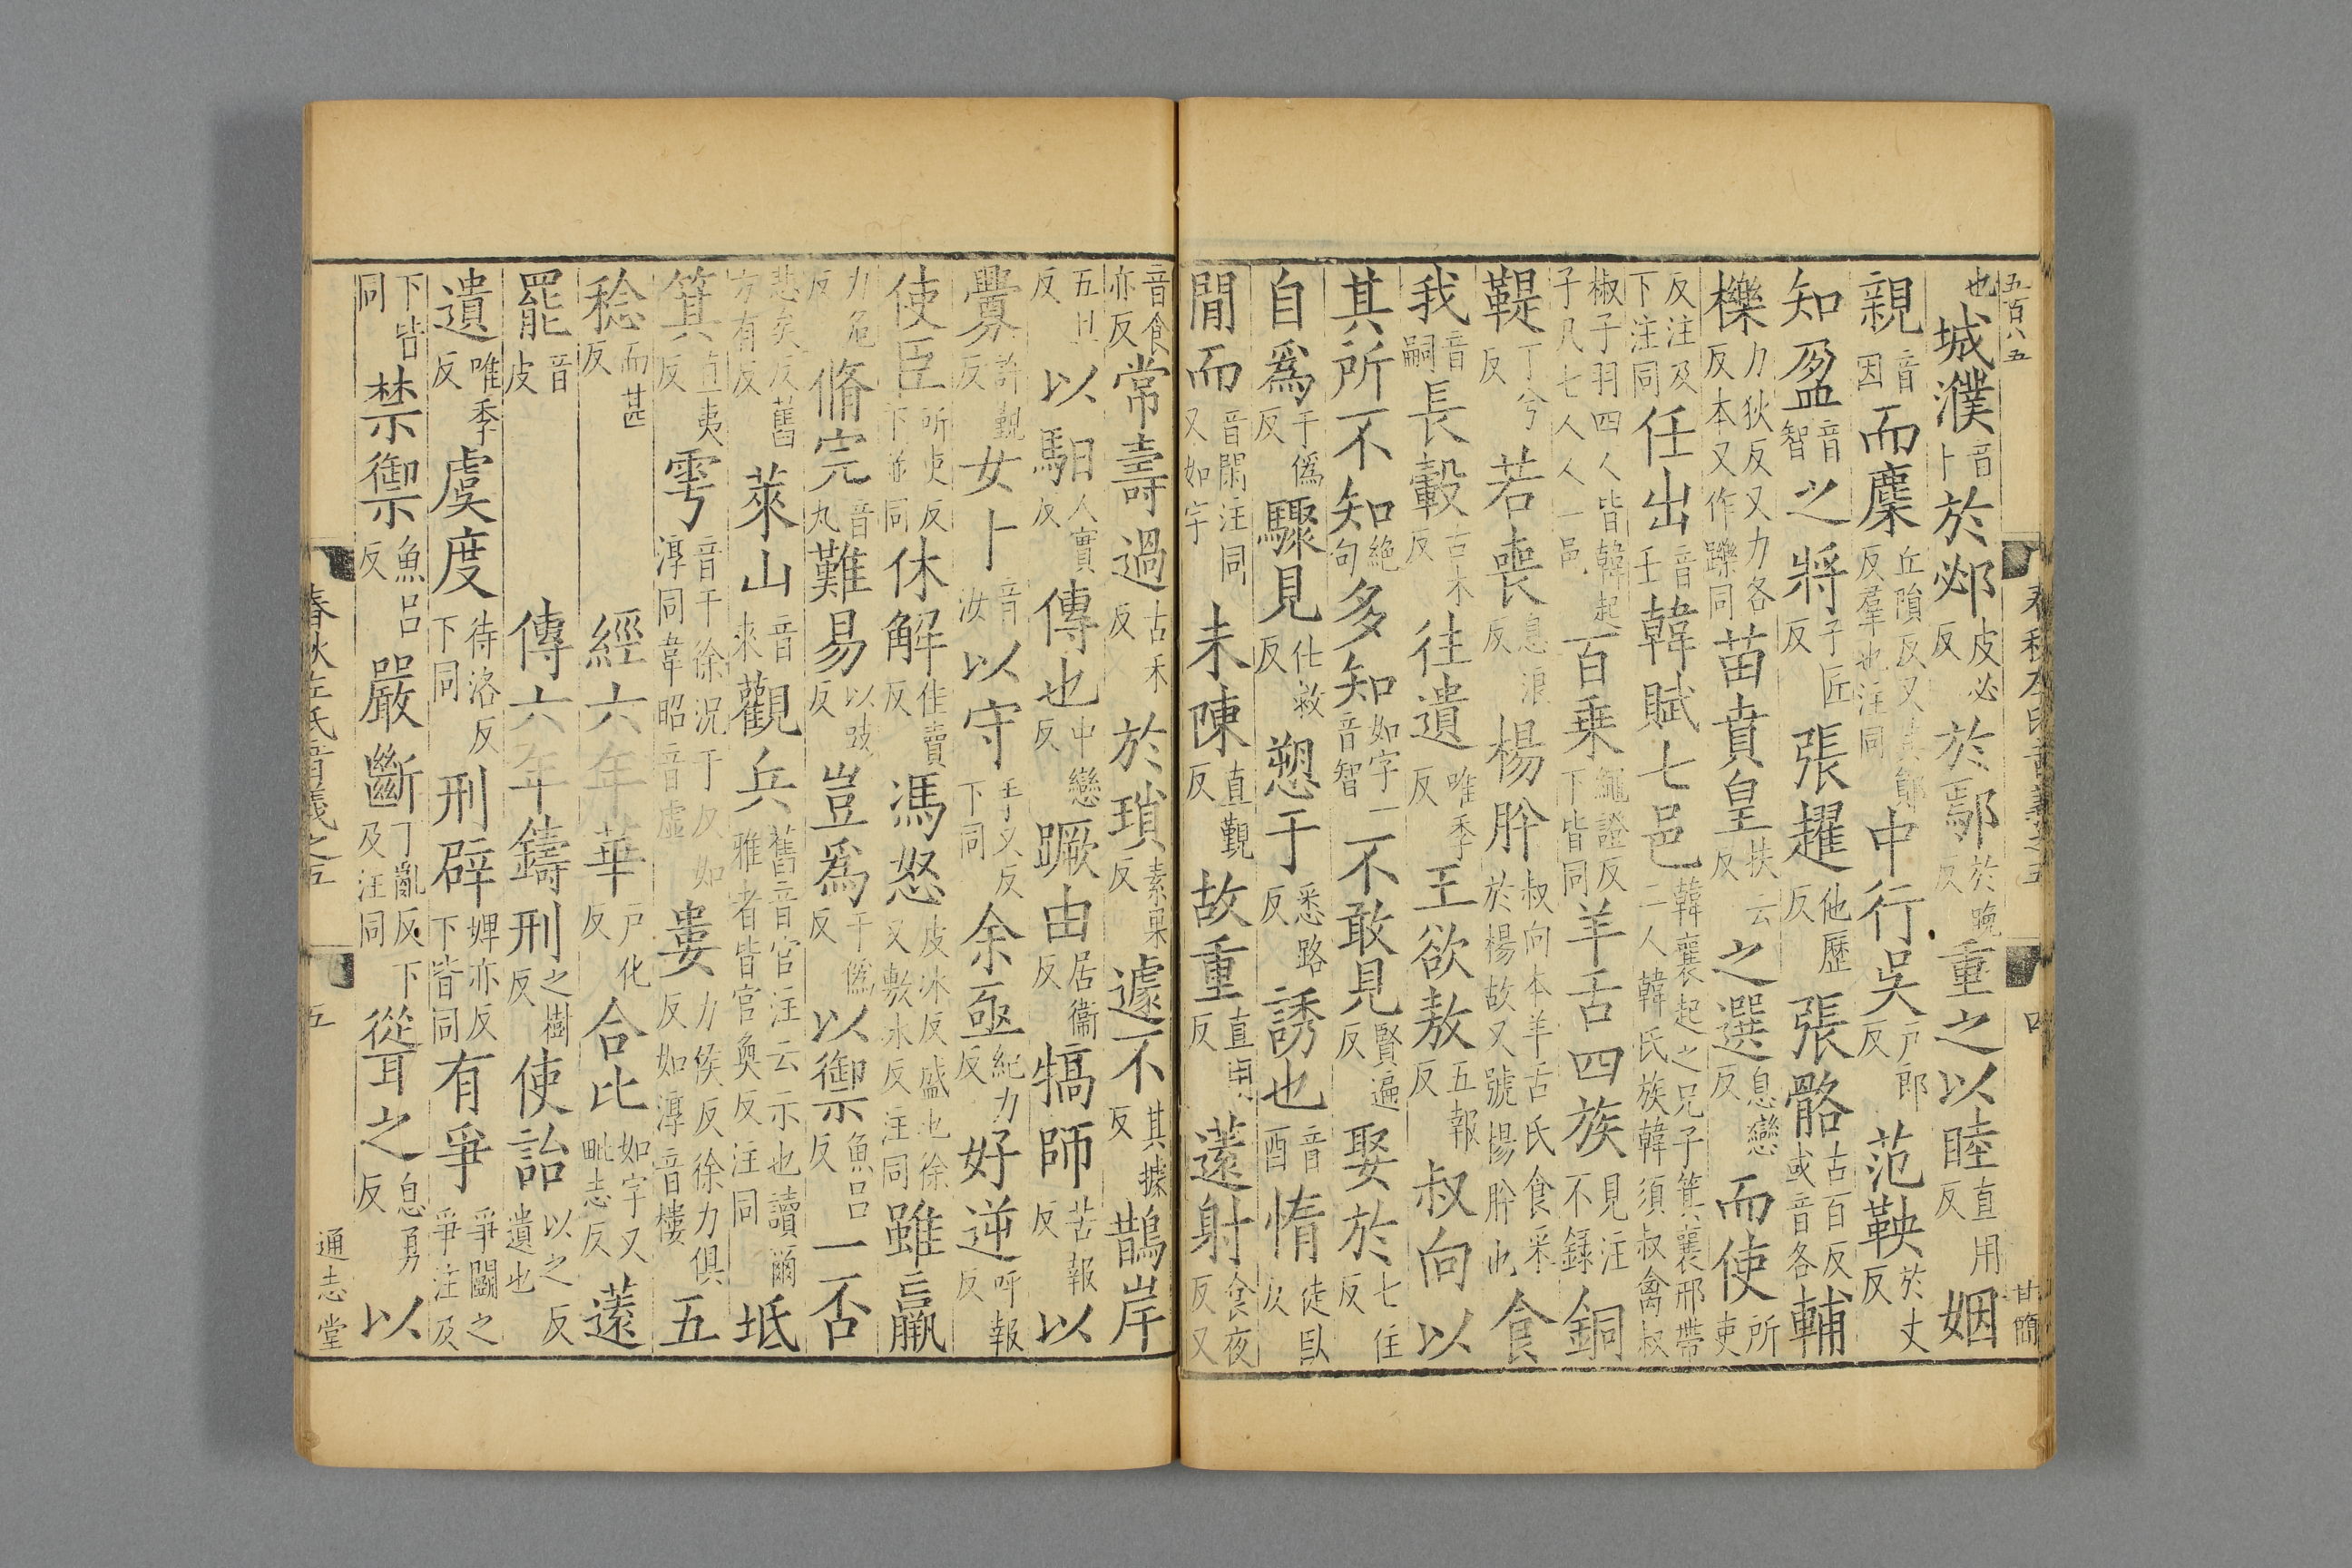 五百八五
春秋左氏音義之五 四 甘簡
也城濮音卜於邲皮必反於鄢於晚反重之以睦直用反姻
親音因而麇丘隕反又其郡反羣也注同中行吳戶郎反范鞅於丈反
知盈音智之將子匠反張趯他歷反張骼古百反或音各輔
櫟力狄反又力各反本又作躒同苗賁皇扶云反之選息戀反而使所吏
反注及下注同任出音壬韓賦七邑韓襄起之兄子箕襄邢帶二人韓氏族韓須叔禽叔
椒子羽四人皆韓起子凡七人人一邑百乗繩證反下皆同羊舌四族見注不録銅
鞮丁兮反若喪息浪反楊肸叔向本羊舌氏食采於楊故又號楊肸也食
我音嗣長轂古木反往遺唯季反王欲敖五報反叔向以
其所不知絶句多知如字一音智不敢見賢遍反娶於七住反
自爲于僞反驟見仕救反愬于悉路反誘也音酉惰徒臥反
閒而音閑注同又如字未陳直覲反故重直用反薳射食夜反又
音食亦反常壽過古禾反於瑣素果反遽不其據反鵲岸
五旦反以馹人實反傳也中戀反蹶由居衞反犒師苦報反以
釁許覲反女卜音汝以守手又反下同余亟紀力反好逆呼報反
使臣所吏反下並同休解佳賣反馮怒皮冰反盛也徐又敷冰反注同雖羸
力危反脩完音丸難易以豉反豈爲于僞反以禦魚呂反一否
悲矣反舊方有反萊山音來觀兵舊音官注云示也讀爾雅者皆官奐反注同坻
箕直夷反雩音于徐況于反如淳同韋昭音虛婁力侯反徐力俱反如淳音樓五
稔而甚反經六年華戶化反合比如字又毗志反薳
罷音皮傳六年鑄刑之樹反使詒以之反遺也
遺唯季反虞度待洛反下同刑辟婢亦反下皆同有爭爭鬭之爭注及
下皆同禁禦魚呂反嚴斷丁亂反下及注同聳之息勇反以
春秋左氏音義之五 五 通志堂